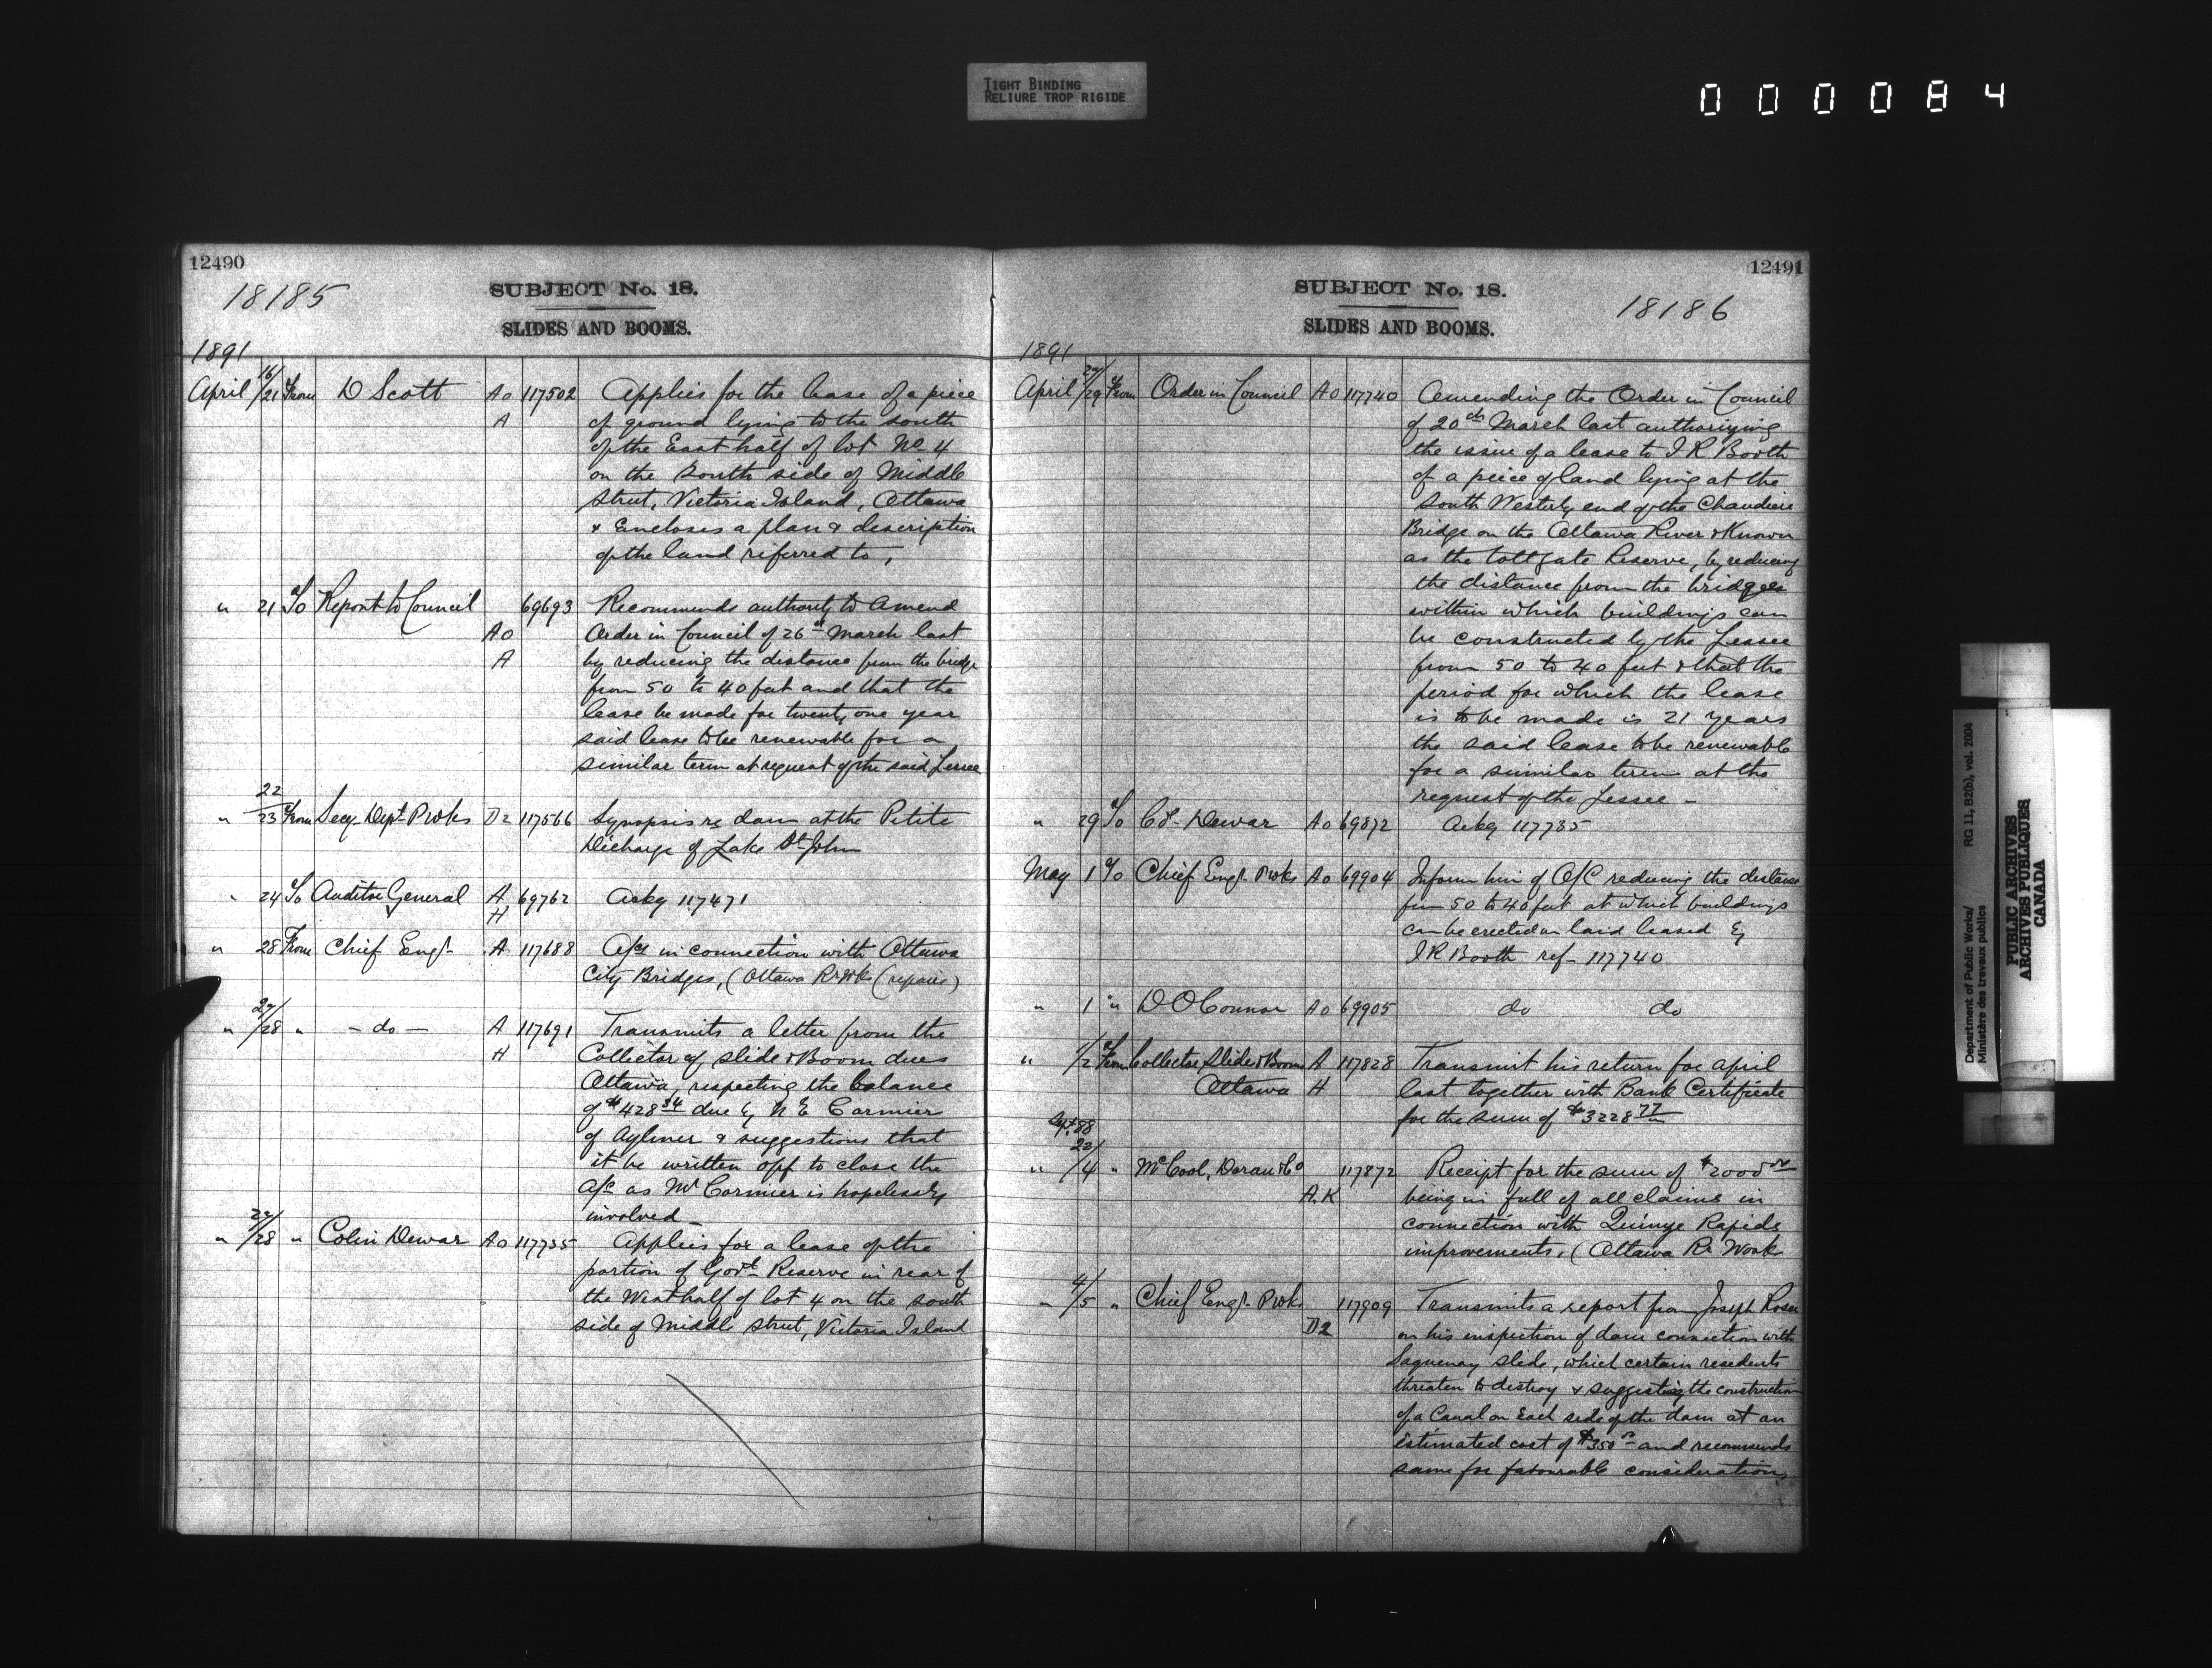 TIGHT BINDING
RELIURE TROP RIGIDE
000084
12490
18185
SUBJECT No. 18.
SLIDES AND BOOMS.
1891
April 16/21 From D Scott Ao 117502 Applies for the lease of a piece
A of ground lying to the south
of the East half of lot No 4
on the South side of Middle
Street, Victoria Island, Ottawa
& Encloses a plan & description
of the land referred to,
" 21 To Report to Council 69693 Recommends authority to amend
Ao Order in Council of 26th March last
A by reducing the distance from the bridge
from 50 to 40 feet and that the
lease be made for twenty one year
said lease to be renewable for a
similar term at request of the said Lessee
" 22/23 From Secy Dept P Wks D2 117566 Synopsis re dam at the Petite
Dicharge of Lake St John
" 24 To Auditor General A 69762 Ackg 117471
H
" 28 From Chief Engr A 117688 A/cs in connection with Ottawa
City Bridges, (Ottawa R Wks (repairs)
" 27/28 " - do - A 117691 Transmits a letter from the
H Collector of slide & Boom dues
Ottawa, respecting the balance
of $428 34 due by N E Cormier
of Aylmer & suggestions that
it be written off to close the
a/c as Mr Cormier is hopelessly
involved -
" 27/28 " Colin Dewar Ao 117735 Applies for a lease of the
portion of Govt Reserve in rear of
the West half of lot 4 on the south
side of Middle Street, Victoria Island
12491
SUBJECT No. 18.
18186
SLIDES AND BOOMS.
1891
April 27/29 From Order in Council Ao 117740 Amending the Order in Council
of 20th March last authorizing
the issue of a lease to J R Booth
of a piece of land lying at the
South Westerly end of the Chaudiere
Bridge on the Ottawa River & Known
as the tollgate Reserve, by reducing
the distance from the bridges
within which buildings can
be constructed by the Lessee
from 50 to 40 feet & that the
period for which the lease
is to be made is 21 years
the said lease to be renewable
for a similar term at the
request of the Lessee -
" 29 To Dewar Ao 69872 Ackg 117735
May 1 To Chief Engr P Wks Ao 69904 Inform him of O/C reducing the distance
from 50 to 40 feet at which buildings
can be erected on land leased by
J R Booth ref - 117740
" 1 " D O'Connor Ao 69905 do do
" 1/2 From Collector Slide & Boom A 117828 Transmit his return for April
Ottawa H last together with Bank Certificate
for the sum of $3228 77
Sept 88
" 22/4 " McCool, Doran & Co 117872 Receipt for the sum of $2000 00
A.K being in full of all claims in
connection with Quinze Rapids
improvements. (Ottawa Rr Works
" 4/5 " Chief Engr P Wks 117909 Transmits a report from Joseph Rosa
D2 on his inspection of dam connection with
Saguenay Slide, which certain residents
threaten to destroy & suggesting the construction
of a Canal on Each side of the dam at an
estimated cost of $350 and recommends
same for favourable consideration,
Department of Public Works/
Ministère des travaux publics
RG 11, B2(b), vol. 2004
PUBLIC ARCHIVES
ARCHIVES PUBLIQUES
CANADA